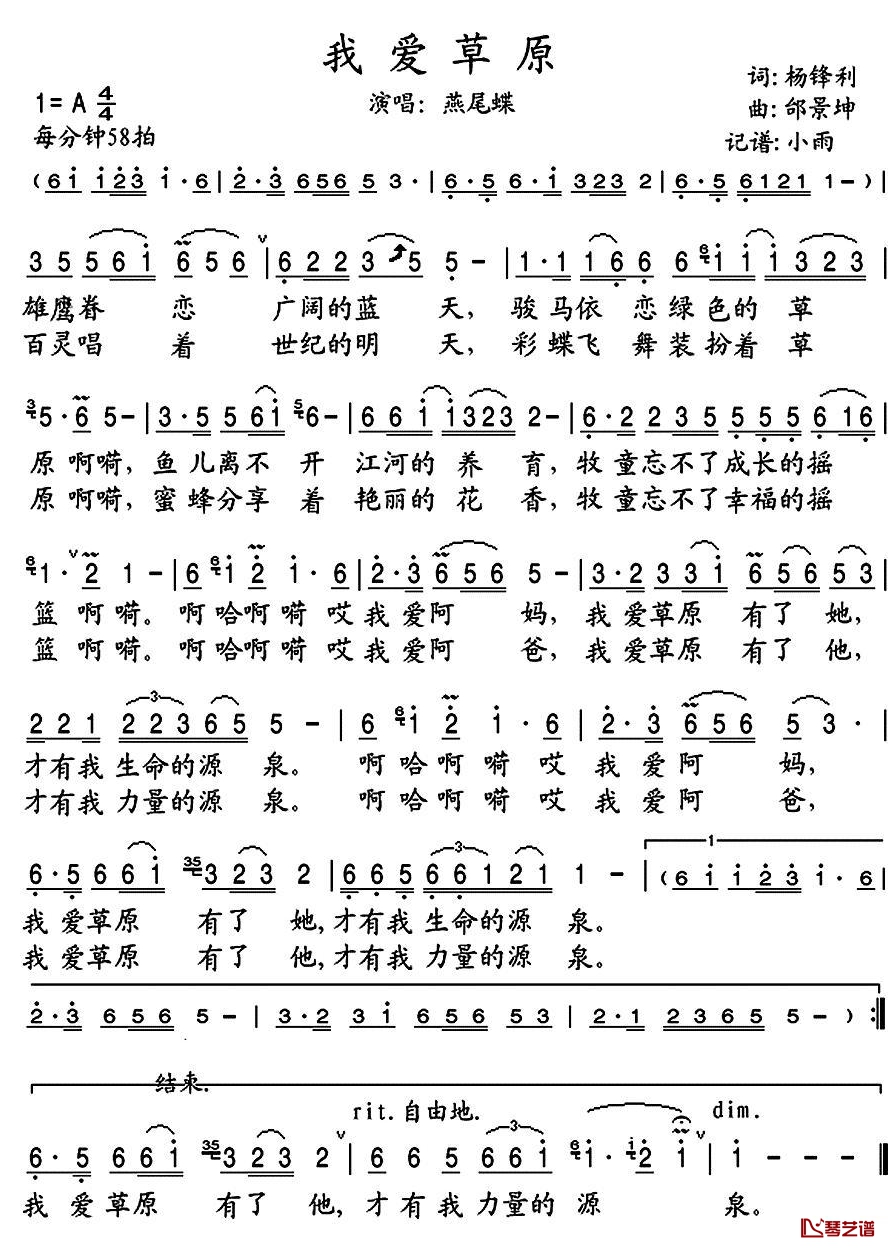 我爱草原
1=A 4/4
演唱：燕尾蝶
词：杨锋利
曲：邰景坤
每分钟58拍
记谱：小雨
（6i i23 i·6|2·3 656 5 3·|6·5 6·i 323 2|6·5 6121 1-）|
35561 656|62235 5-|1·1166 6 6i1i323
雄鹰眷 恋 广阔的蓝 天，骏马依 恋绿色的 草
百灵唱 着 世纪的明 天，彩蝶飞 舞装扮着 草
5·6 5-|3·5561 6-|661 1323 2-|6·2 235 555 616
原啊嗬，鱼儿离不 开 江河的 养 育，牧童忘不了成长的摇
原啊嗬，蜜蜂分享 着 艳丽的 花 香，牧童忘不了幸福的摇
1·2 1-|6 i2 i·6|2·3 656 5-|3·2 33i 565 53|
篮啊嗬。啊哈啊嗬哎我爱阿 妈，我爱草原 有了 她，
篮啊嗬。啊哈啊嗬哎我爱阿 爸，我爱草原 有了 他，
221 22365 5-|6 i2 i·6|2·3 656 53·|
才有我生命的源 泉。 啊哈啊嗬哎我爱阿 妈，
才有我力量的源 泉。 啊哈啊嗬哎我爱阿 爸，
6·5 66i 323 2|665 66121 1-|（6i i23 i·6|
我爱草原 有了 她，才有我生命的源 泉。
我爱草原 有了 他，才有我力量的源 泉。
2·3 656 5-|3·2 3i 656 53|2·1 2365 5-）:|
结束.
rit.自由地.
dim.
6·5 66i 323 2|6 6 5 66i i·2 i|i - - -||
我爱草原 有了 他，才有我力量的源 泉。
琴艺谱